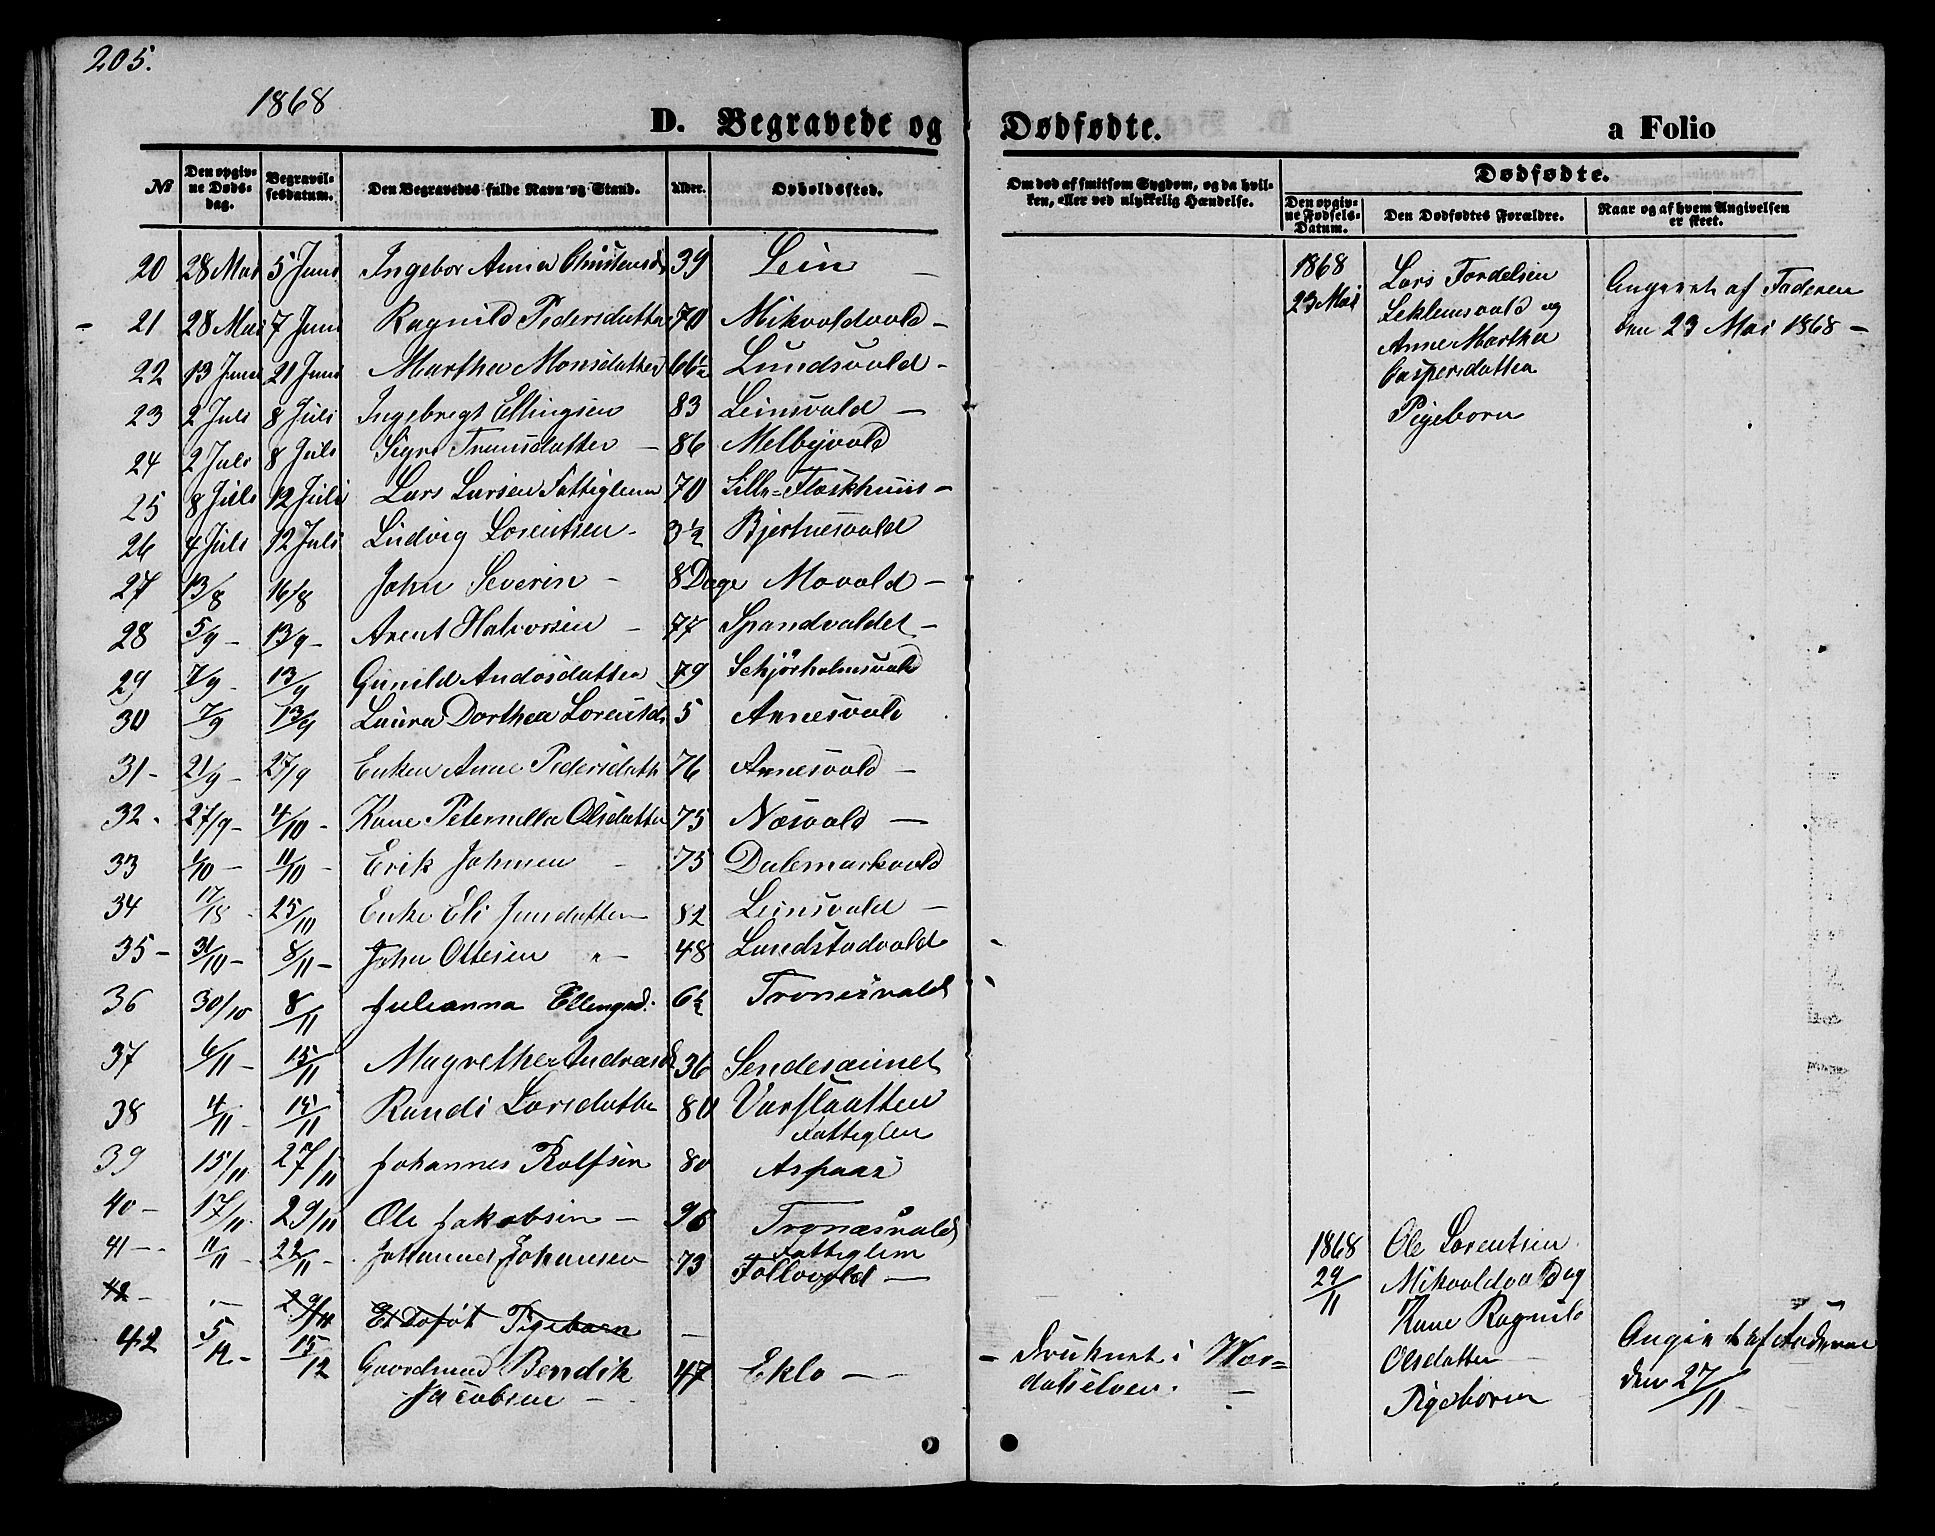 205.
1868
D. Begravede og Dødfødte. a Folio
No Den opgivne Døds-dag. Begravelsesdatum. Den Begravedes fulde Navn og Stand. Alder. Opholdssted. Om død af smitsom Sygdom, og da hvilken, eller ved ulykkelig Hændelse. Dødfødte. Den opgivne Fødsels-Datum. Den Dødfødtes Forældre. Naar og af hvem Angivelsen er skeet.
20 28 Mai 5 Juni Ingebor Anna Christensd 39 Lein —
21 28 Mai 7 Juni Ragnild Pedersdatter 70 Mikvoldvald —
22 13 Juni 21 Juni Martha Monsdatter 66½ Lundsvald -
23 2 Juli 8 Juli Ingebregt Ellingsen 83 Leinsvald —
24 2 Juli 8 Juli Sigri Tronsdatter — 86 Melbyvald
25 8 Juli 12 Juli Lars Larsen Fattiglem 70 Lille=Floskhuus —
26 4 Juli 12 Juli Ludvig Lorentsen - 3½ Bjertnesvald
27 13/8 16/8 John Severin — 8 Dage Movald —
28 5/9 — 13/9 — Arent Halvorsen — 77 Spandvaldet —
29 7/9 - 13/9 Gunild Andosdatter 79 Schjørholmsvald
30 7/9 13/9 Laura Dorthea Lorentsd 5 Annesvald
31 - 21/9 - 27/9 Enken Anne Pedersdatt 76 Annesvald —
32 - 27/9 - 4/10 - Kone Peternella Olsdatter 75 Næsvald —
33 1/10 — 11/10 - Erik Johnsen - 75 Dalemarkvald
34 17/18 25/10 Enke Eli Jonsdatter 82 Leinsvald —
35 — 31/10 — 8/11 — John Ottesen " — 48 Lundstadvald
36 30/10 8/11 Julianna Ellingsd. 6½ Tronesvald
37 6/11 — 15/11 Magrethe Andreasd 36 Sendesaunet
38 4/11 - 15/11 Randi Larsdatter 80 Varslaatten
Fattiglem
39 15/11 27/11 Johannes Rolfsen 80 Aspaas
40 — 17/11 29/11 Ole Jakobsen — 96 Tronæsvald
Fattiglem
41 — 11/11 — 22/11 Johannes Johansen 73 Follovald —
42 — — 29/11 Et Døføt Pigebarn —
42 5/12 - 15/12 Gaardmand Bendik 47 Eklo — —
Jacobsen —
— Druknet i Wær=
dalselven. —
1868
23 Mai
Lars Tordelsen
Leklemsvald og
Anne Martha
Caspersdatter
Pigeborn
Angivet af Faderen
den 23 Mai 1868 —
1868
29/11
Ole Lorentsen
Mikvoldvald og
Kone Ragnild
Olsdatter
Pigeborn
Angivet af Faderen
den 27/11 —